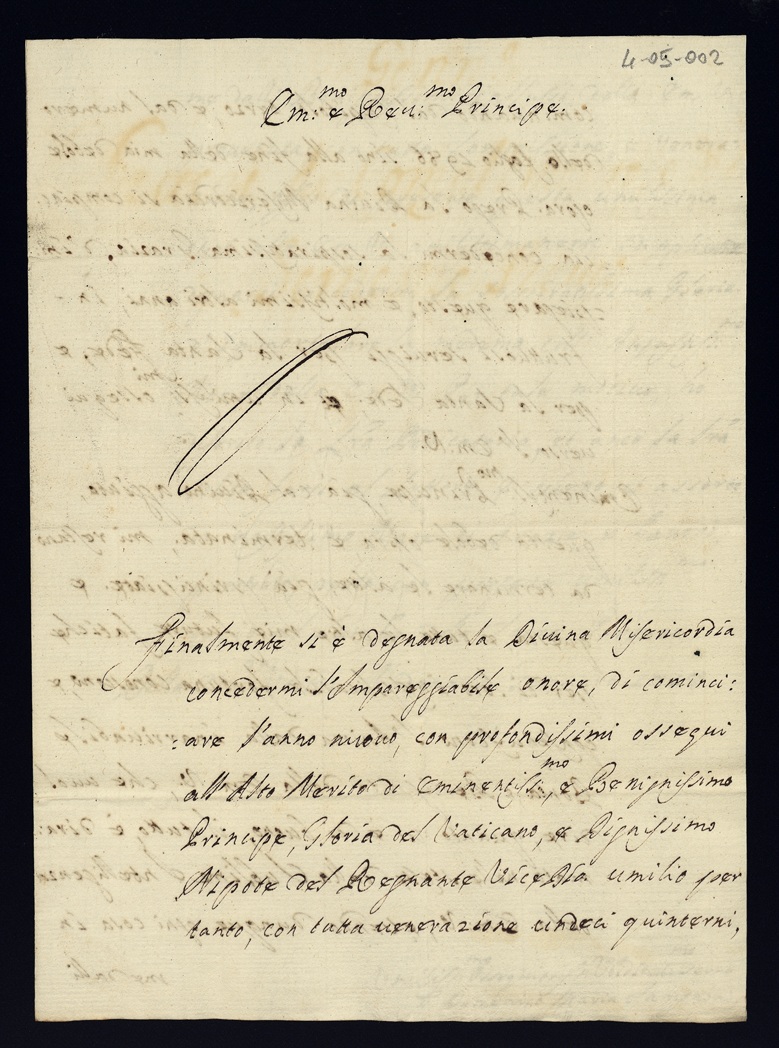 4-05-002
Em:mo e Reu:mo Principe.
Finalmente si è degnata la Diuina Misericordia
concedermi l'Impareggiabile onore, di cominci:
:are l'anno nuouo, con profondissimi ossequi
all'Alto Merito di Eminentiss:mo, e Benignissimo
Principe, Gloria del Vaticano, e Dignissimo
Nipote del Regnante ViceDia umilio per
tanto, con tutta uenerazione undeci quinterni,